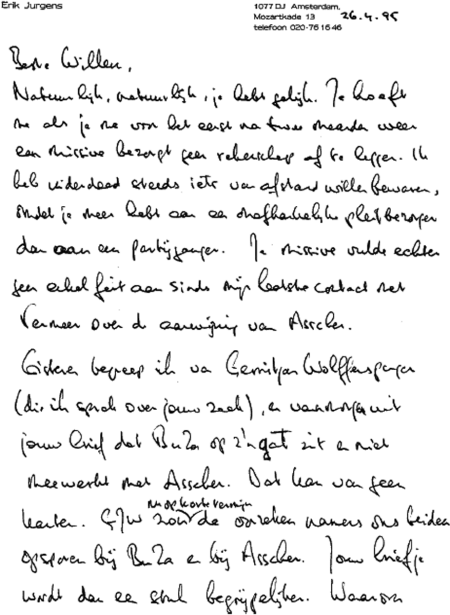 Erik Jurgens
1077 DJ Amsterdam,
Mozartkade 13
telefoon 020-76 16 46
26.4.95
Beste Willem,
Natuurlijk, natuurlijk, je hebt gelijk. Je hoeft
me als je me voor het eerst na twee maanden weer
een missive bezorgt geen rekenschap af te leggen. Ik
heb inderdaad steeds iets van afstand willen bewaren,
omdat je meer hebt aan een onafhankelijke pleitbezorger
dan aan een partijganger. Je missive vulde echter
geen enkel feit aan sinds mijn laatste contact met
Vermeer over de aanwijzing van Asscher.
Gisteren begreep ik van Gerritjan Wolffensperger
(die ik sprak over jouw zaak), en vanmorgen uit
jouw brief dat BuZa op z'n gat zit en niet
meewerkt met Asscher. Dat kan van geen
kanten. GJW zou nu op korte termijn de oorzaken namens ons beiden
opsporen bij BuZa en bij Asscher. Jouw briefje
wordt dan een stuk begrijpelijker. Waarom